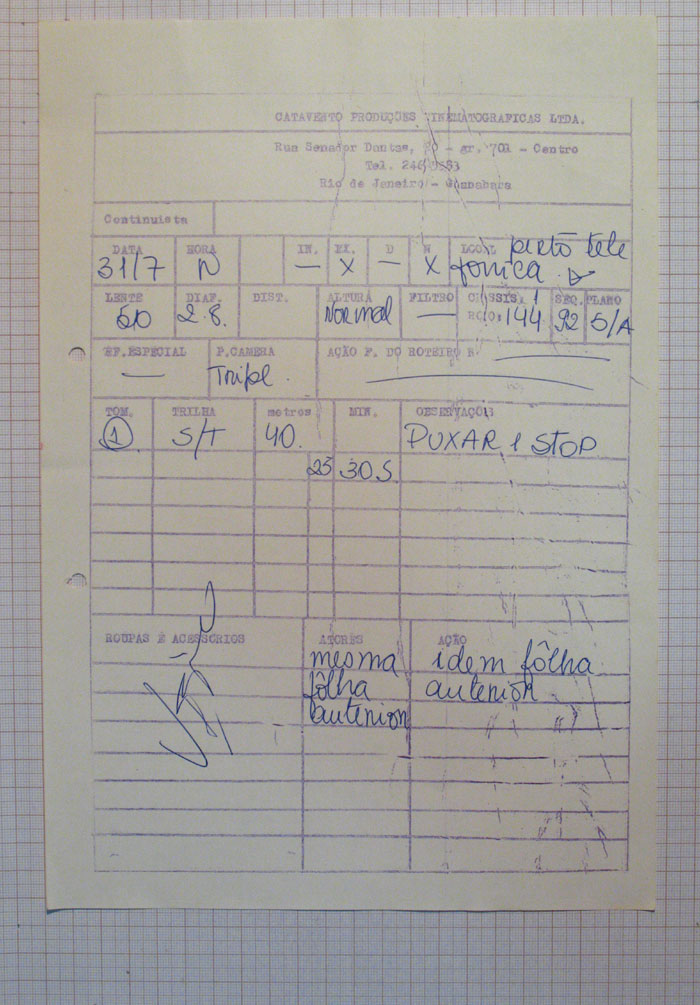 CATAVENTO PRODUÇÕES CINEMATOGRAFICAS LTDA.
Rua Senador Dantas, - gr. 701 - Centro
Tel.
Rio de Janeiro - Guanabara
Continuista
DATA HORA IN. EX. D N LOCAL perto tele
31/7 N — X — X fonica
LENTE DIAF. DIST. ALTURA FILTRO CHASSIS. 1 SEQ. PLANO
50 2.8. Normal — ROLO: 144 92 5/A
EF.ESPECIAL P.CAMERA AÇÃO P. DO ROTEIRO
— Tripe.
TOM. TRILHA metros MIN. OBSERVAÇÕES
1 S/T 40. PUXAR 1 STOP
25 30S
ROUPAS E ACESSORIOS ATORES AÇÃO
mesma idem fôlha
fôlha anterior
anterior